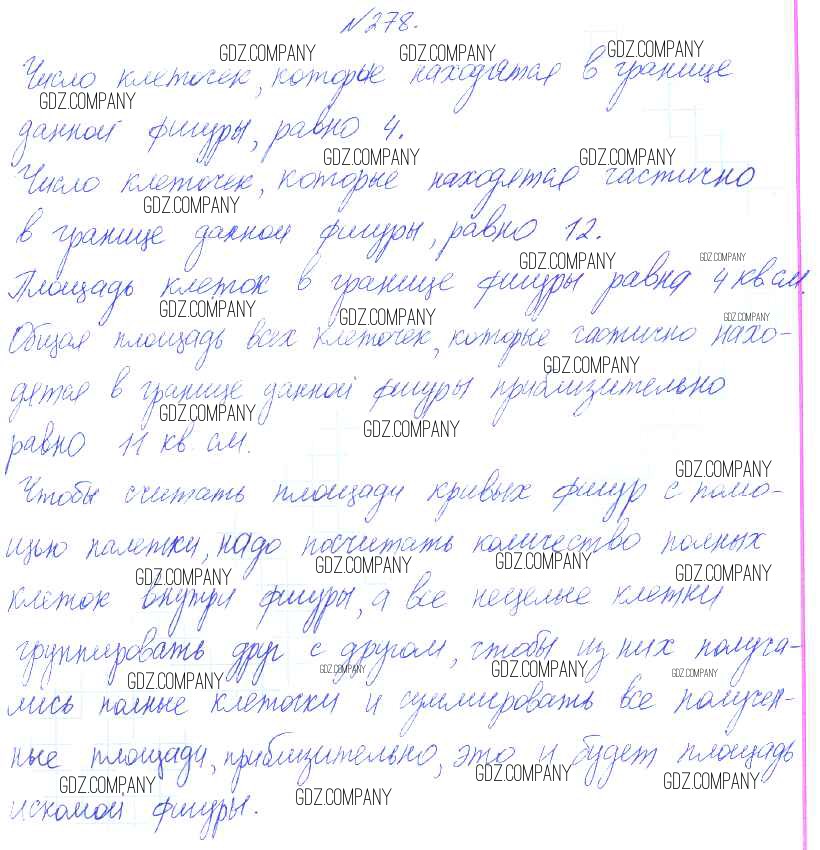 №278.
GDZ.COMPANY GDZ.COMPANY GDZ.COMPANY
Число клеточек, которые находятся в границе
GDZ.COMPANY
данной фигуры, равно 4.
GDZ.COMPANY GDZ.COMPANY
Число клеточек, которые находятся частично
GDZ.COMPANY
в границе данной фигуры, равно 12.
GDZ.COMPANY GDZ.COMPANY
Площадь клеток в границе фигуры равна 4 кв см.
GDZ.COMPANY GDZ.COMPANY GDZ.COMPANY
Общая площадь всех клеточек, которые частично нахо-
GDZ.COMPANY
дятся в границе данной фигуры приблизительно
GDZ.COMPANY GDZ.COMPANY
равно 11 кв. см.
GDZ.COMPANY
Чтобы считать площади кривых фигур с помо-
щью палетки, надо посчитать количество полных
GDZ.COMPANY GDZ.COMPANY GDZ.COMPANY GDZ.COMPANY
клеток внутри фигуры, а все нецелые клетки
группировать друг с другом, чтобы из них получа-
GDZ.COMPANY GDZ.COMPANY GDZ.COMPANY GDZ.COMPANY
лись полные клеточки и суммировать все получен-
ные площади, приблизительно, это и будет площадь
GDZ.COMPANY GDZ.COMPANY GDZ.COMPANY GDZ.COMPANY
искомой фигуры.